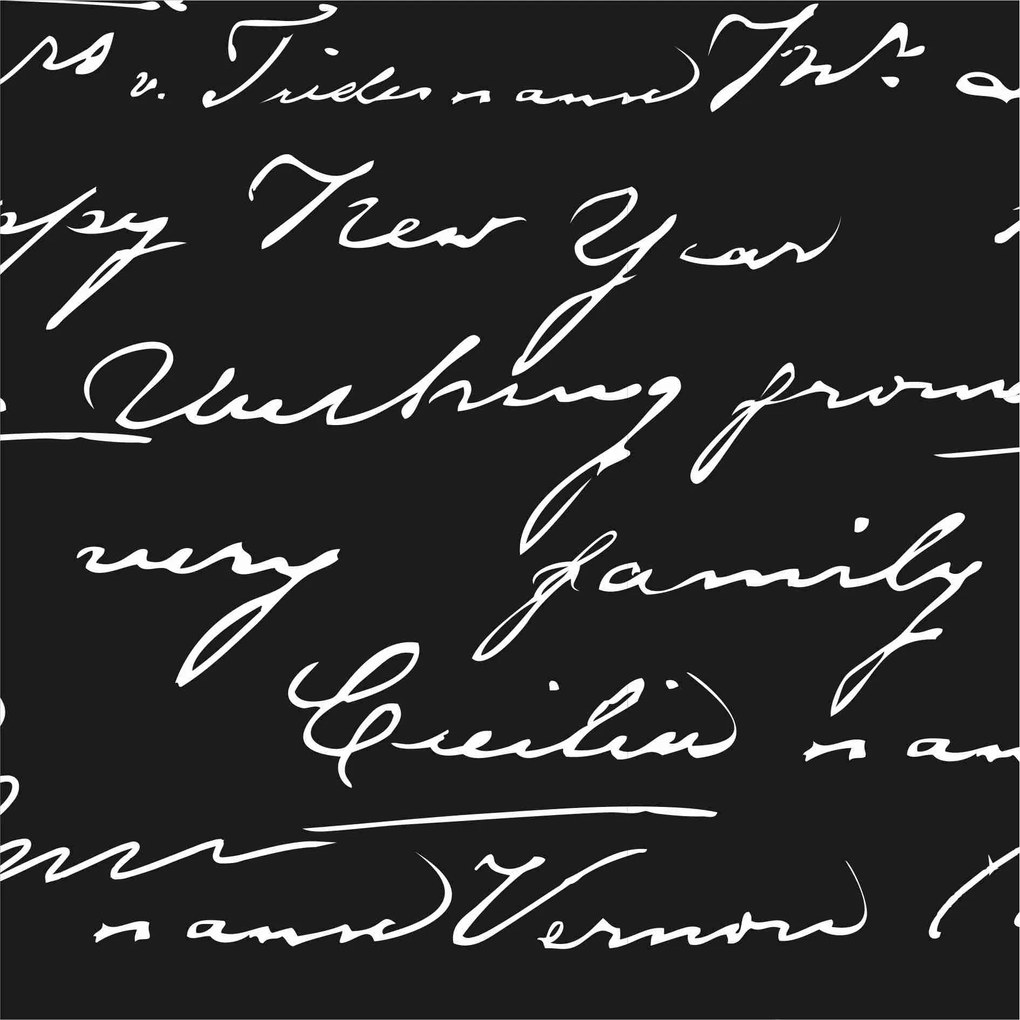 rs v. Trides name Mr.
ppy New Year
Wishing from
very family
Cecilia nam
name Vernon